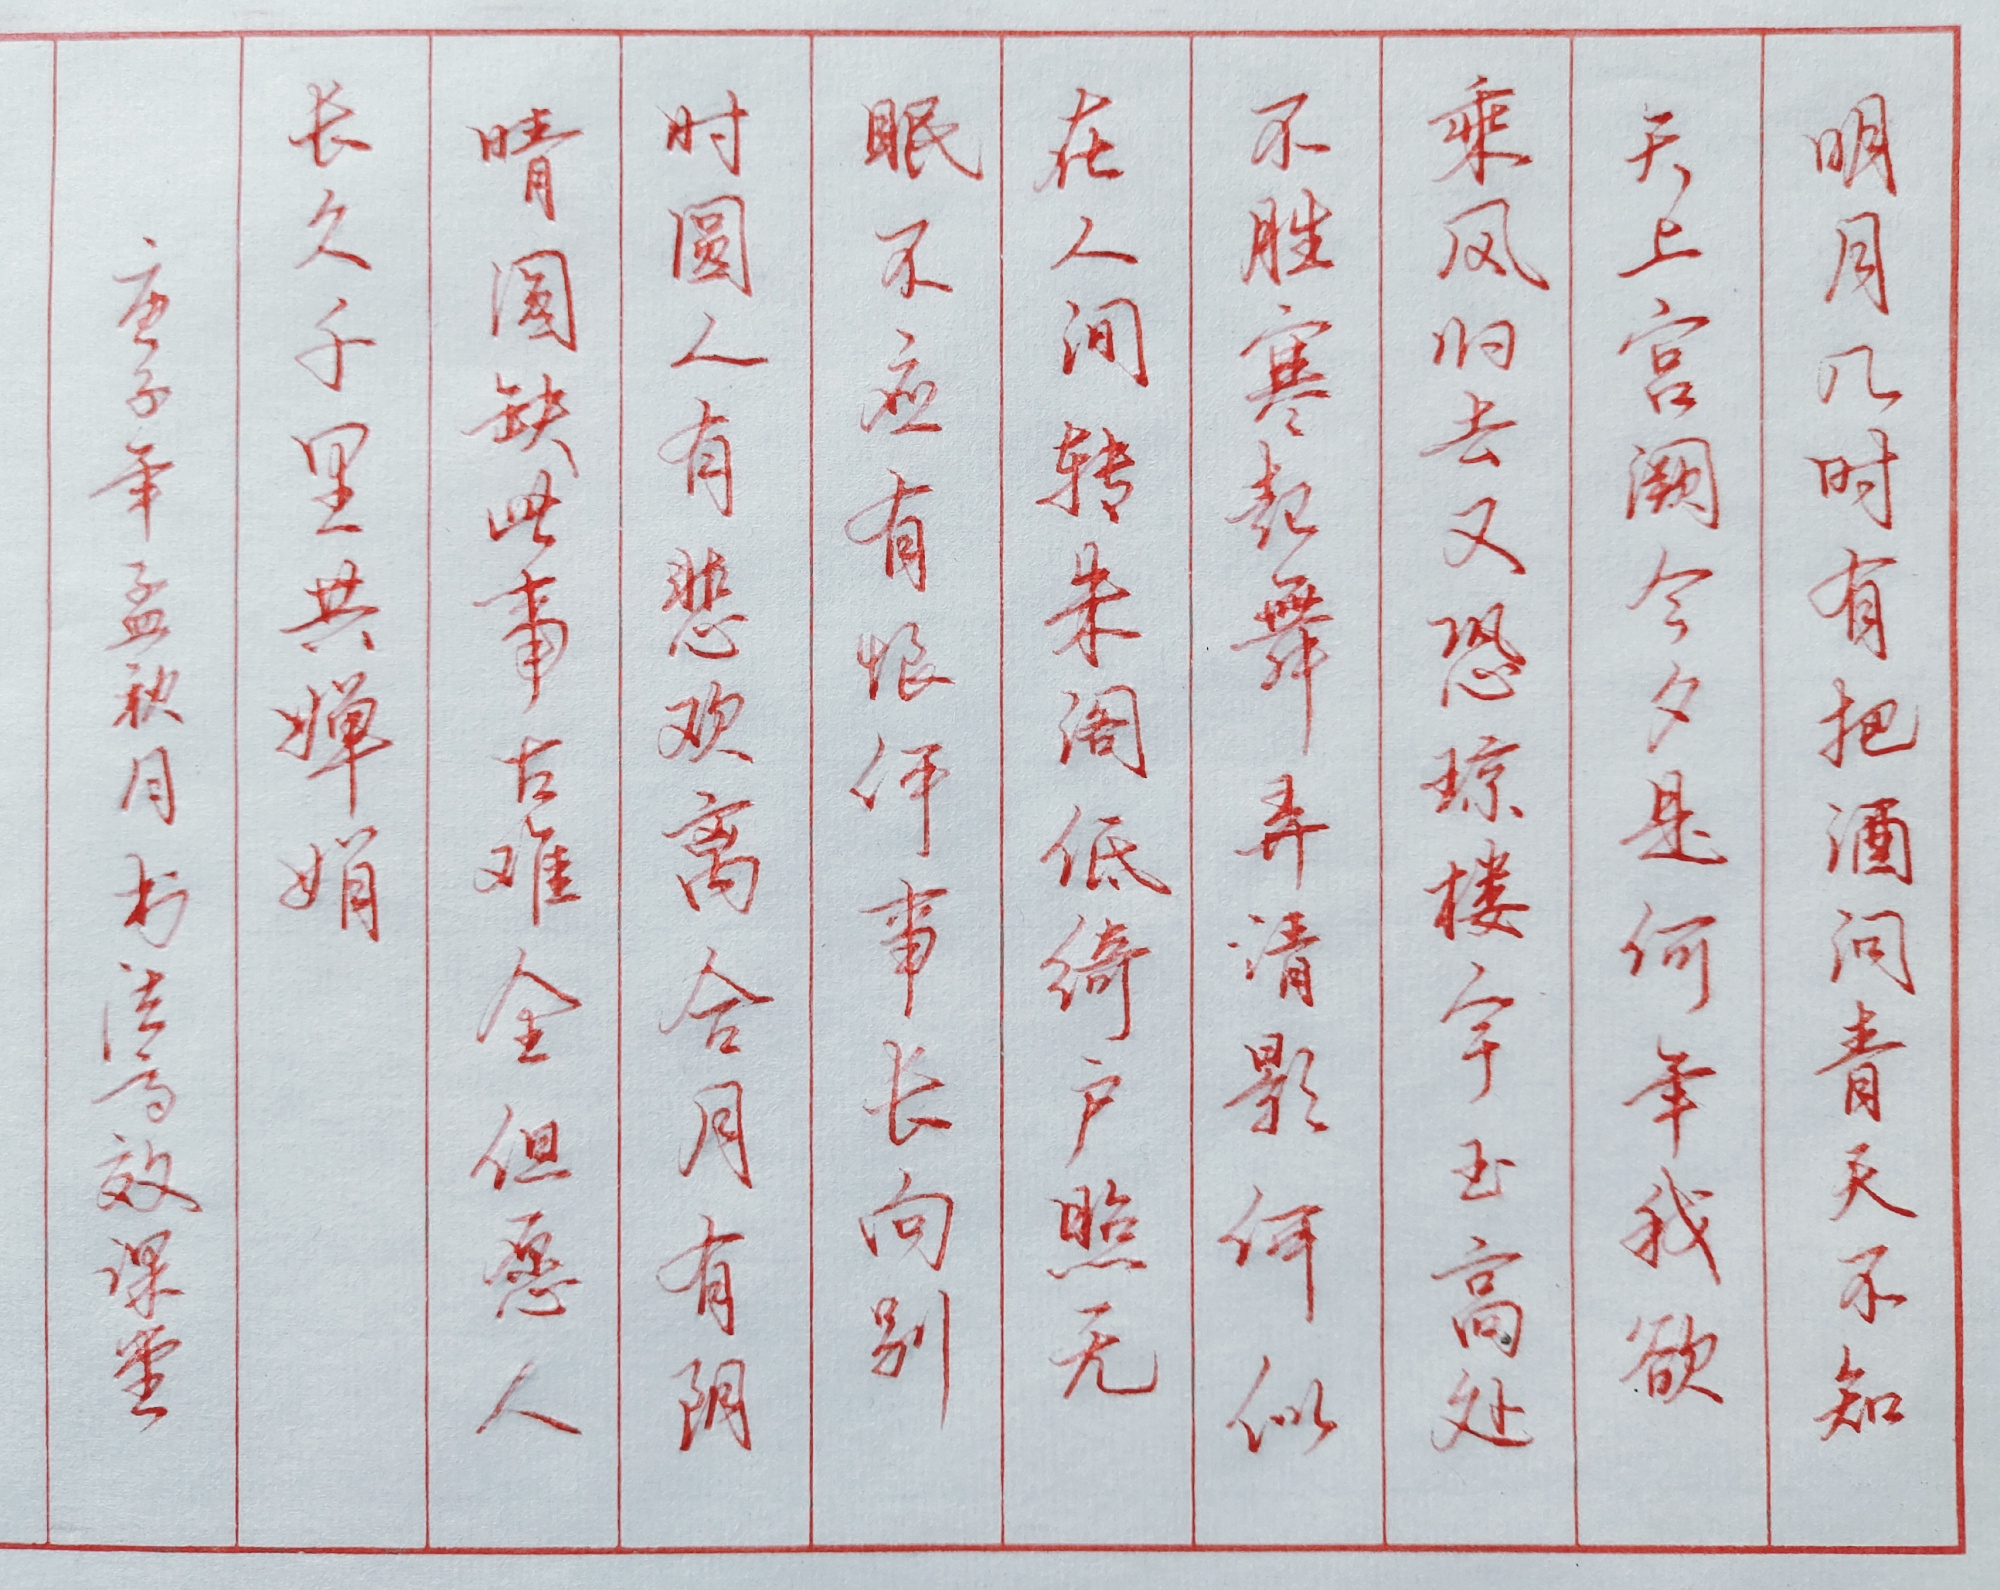 明月几时有把酒问青天不知
天上宫阙今夕是何年我欲
乘风归去又恐琼楼宇玉高处
不胜寒起舞弄清影何似
在人间转朱阁低绮户照无
眠不应有恨何事长向别
时圆人有悲欢离合月有阴
晴圆缺此事古难全但愿人
长久千里共婵娟
庚子年孟秋月书法高效课堂